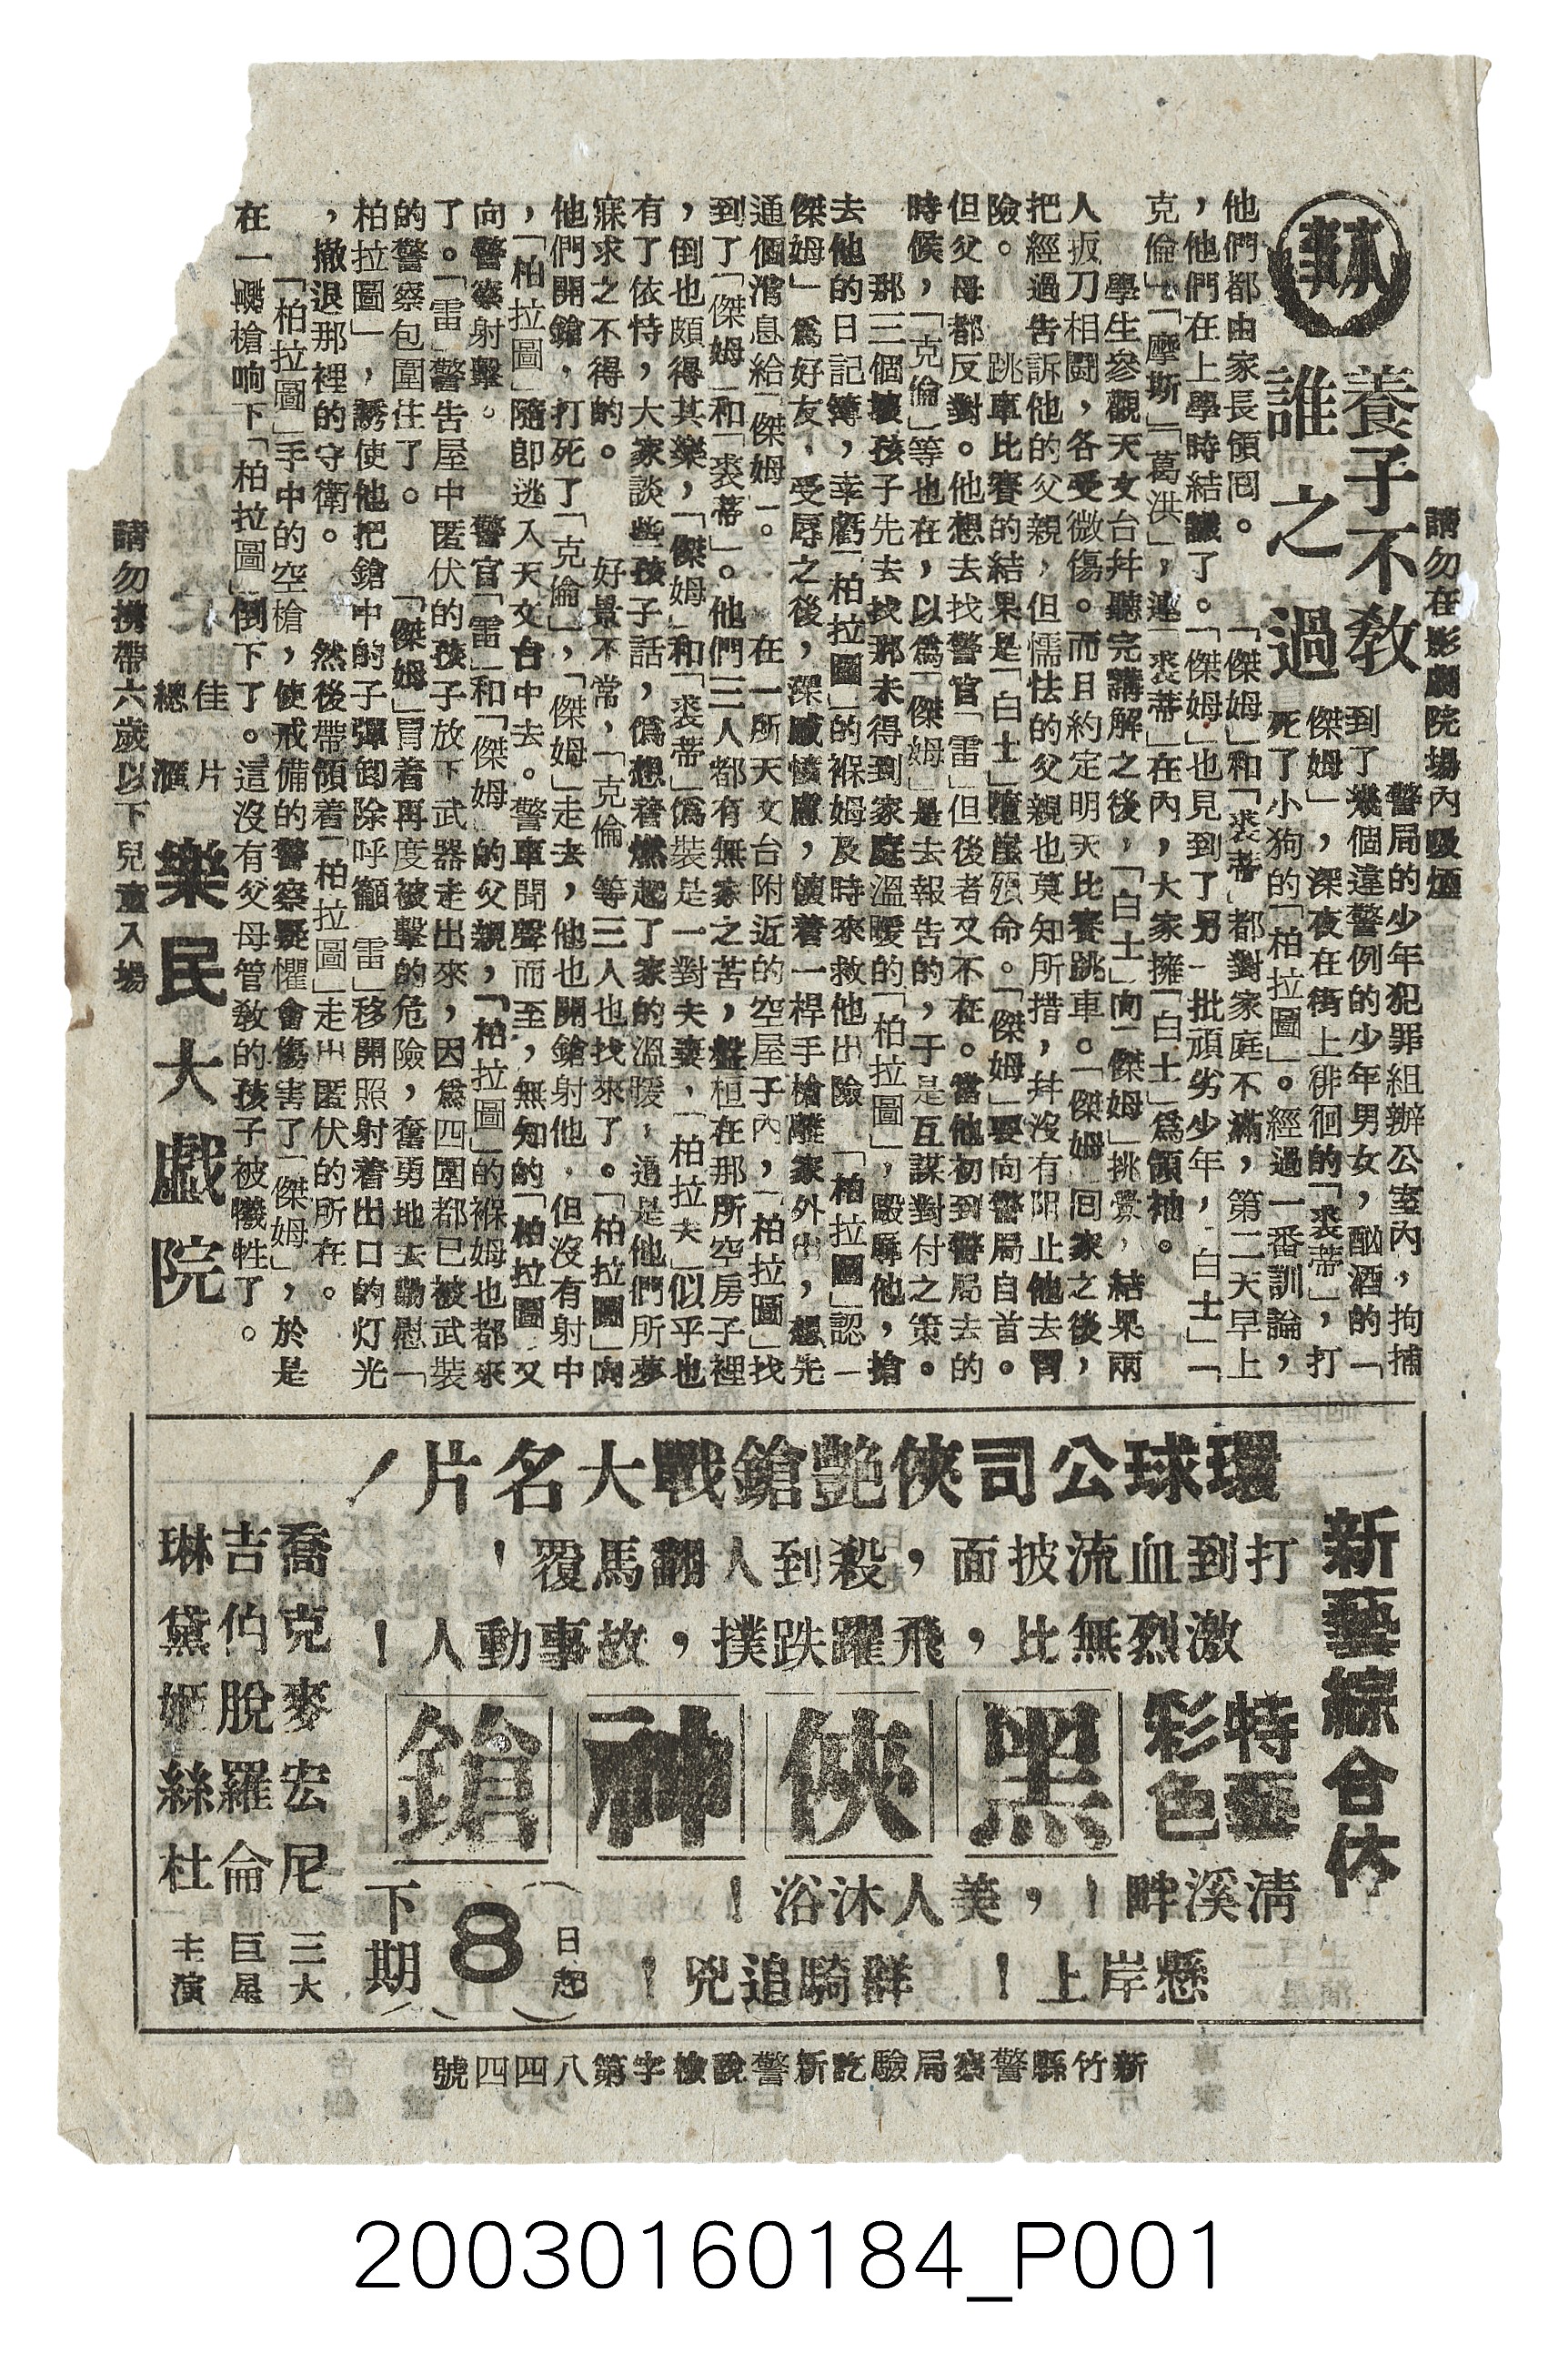 請勿在影劇院塲內吸煙
養子不教
誰之過
警局的少年犯罪組辦公室內，拘捕
到了幾個違警例的少年男女，酗酒的「
傑姆」，深夜在街上徘徊的「裘蒂」，打
死了小狗的「柏拉圖」。經過一番訓諭，
他們都由家長領囘。　「傑姆」和「裘蒂」都對家庭不滿，第二天早上
，他們在上學時結識了。「傑姆」也見到了另一批頑劣少年，「白士」「
克倫」「摩斯」「葛洪」，連「裘蒂」在內，大家擁「白士」爲領袖。
學生參觀天文台幷聽完講解之後，「白士」向「傑姆」挑釁，結果兩
人扳刀相鬪，各受微傷。而目約定明天比賽跳車。「傑姆」囘家之後，
把經過告訴他的父親，但懦怯的父親也莫知所措，幷沒有阻止他去冒
險。　跳車比賽的結果是「白士」墮崖殞命。「傑姆」要向警局自首。
但父母都反對。他想去找警官「雷」但後者又不在。當他初到警局去的
時候，「克倫」等也在，以爲「傑姆」是去報告的，于是互謀對付之策。
那三個壞孩子先去找那未得到家庭溫暖的「柏拉圖」，毆辱他，搶
去他的日記簿，幸虧「柏拉圖」的褓姆及時來救他出險　「柏拉圖」認「
傑姆」爲好友，受辱之後，深感憤慮，懷着一桿手槍離家外出，想先
通個消息給「傑姆」。　在一所天文台附近的空屋子內，「柏拉圖」找
到了「傑姆」和「裘蒂」。他們三人都有無家之苦，盤桓在那所空房子裡
，倒也頗得其樂，「傑姆」和「裘蒂」僞裝是一對夫妻，「柏拉夫」似乎也
有了依恃，大家談些孩子話，僞想着燃起了家的溫暖，這是他們所夢
寐求之不得的。　好景不常，「克倫」等三人也找來了。「柏拉圖」向
他們開鎗，打死了「克倫」，「傑姆」走去，他也開鎗射他，但沒有射中
，「柏拉圖」隨卽逃入天文台中去。警車聞聲而至，無知的「柏拉圖」又
向警察射擊。　警官「雷」和「傑姆」的父親，「柏拉圖」的褓姆也都來
了。「雷」警告屋中匿伏的孩子放下武器走出來，因爲四圍都已被武裝
的警察包圍住了。　「傑姆」冒着再度被擊的危險，奮勇地去勸慰「
柏拉圖」，誘使他把鎗中的子彈卸除呼籲「雷」移開照射着出口的灯光
，撤退那裡的守衛。　然後帶領着「柏拉圖」走出匿伏的所在。
「柏拉圖」手中的空槍，使戒備的警察疑懼會傷害了「傑姆」，於是
在一聲槍响下「柏拉圖」倒下了。這沒有父母管敎的孩子被犧牲了。
佳片
總滙
樂民大戲院
請勿携帶六歲以下兒童入塲
環球公司俠艷鎗戰大名片！
新藝綜合体
打到血流披面，殺到人翻馬覆！
激烈無比，飛躍跌撲，故事動人！
特藝
彩色
黑俠神鎗
清溪畔！，美人沐浴！
懸岸上！群騎追兇！
下期
（8日起）
喬克麥宏尼
吉伯脫羅倫
琳黛姬絲杜
三大
巨星
主演
新竹縣警察局驗訖新警說檢字第八四四號
20030160184_P001